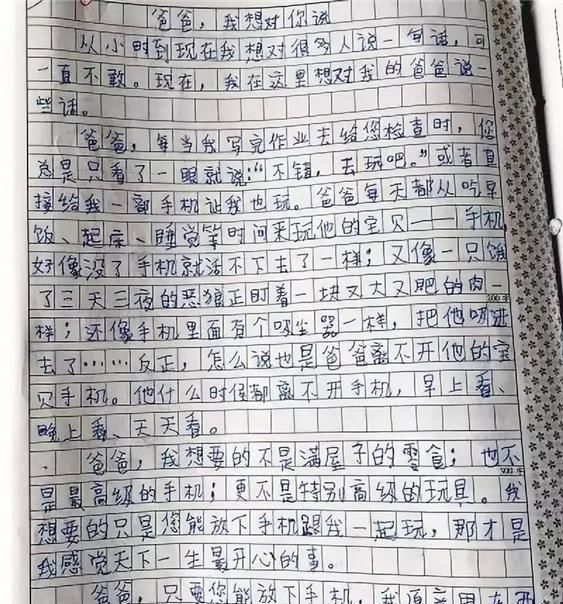 爸爸，我想对你说
从小时到现在我想对很多人说一句话，可
一直不敢。现在，我在这里想对我的爸爸说一
些话。
爸爸，每当我写完作业去给您检查时，您
总是只看了一眼就说：“不错，去玩吧。”或者直
接给我一部手机让我也玩。爸爸每天都从吃早
饭、起床、睡觉等时间来玩他的宝贝——手机
好像没了手机就活不下去了一样；又像一只饿
了三天三夜的恶狼正盯着一块又大又肥的肉一
样；还像手机里面有个吸尘器一样，把他吸进
去了……反正，怎么说也是爸爸离不开他的宝
贝手机。他什么时候都离不开手机，早上看、
晚上看、天天看。
爸爸，我想要的不是满屋子的零食；也不
是最高级的手机；更不是特别高级的玩具。我
想要的只是您能放下手机跟我一起玩，那才是
我感觉天下一生最开心的事。
爸爸，只要您能放下手机，我